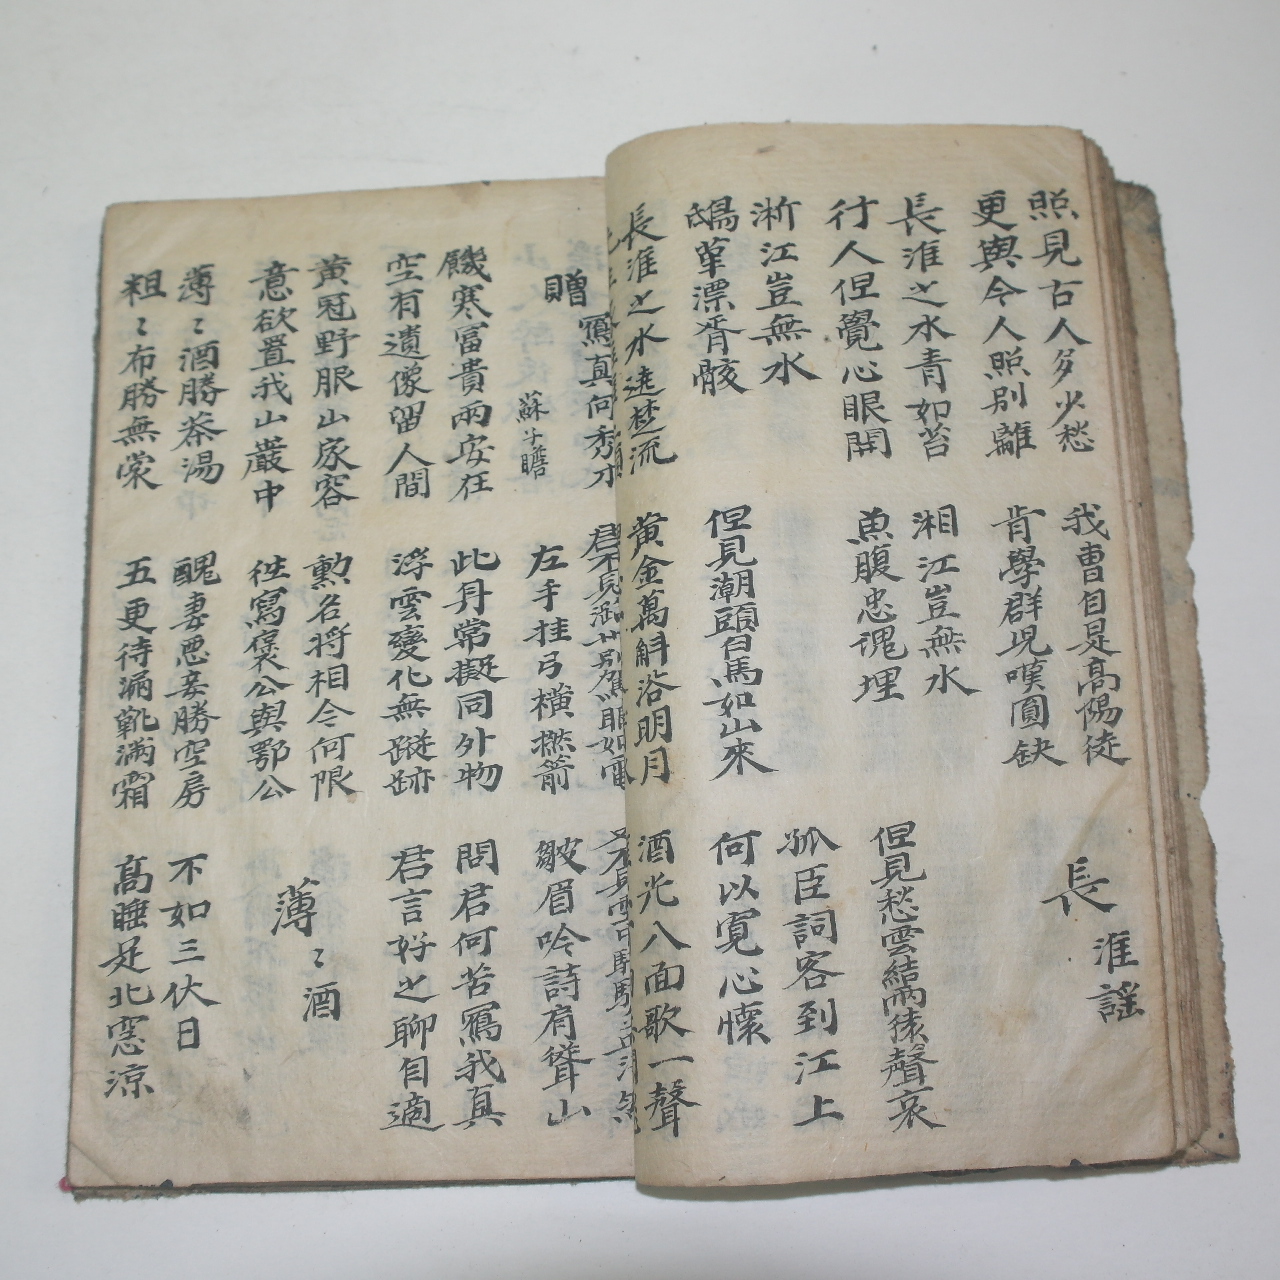 照見古人多少愁
更與今人照別離
我曹自是高陽徒
肯學群兒嘆圓缺
長淮謠
長淮之水青如苔
行人但覺心眼開
湘江豈無水
魚腹忠魂埋
但見愁雲結雨猿聲哀
浙江豈無水
鴟革漂胥骸
但見潮頭白馬如山來
孤臣詞客到江上
何以寬心懷
長淮之水遶楚流
黃金萬斛浴明月
酒光八面歌一聲
贈寫真何秀才
蘇子瞻
君不見潞州別駕眼如電
左手挂弓橫撚箭
又不見雪中騎驢孟浩然
皺眉吟詩肩聳山
饑寒富貴兩安在
空有遺像留人間
此身常擬同外物
浮雲變化無蹤跡
問君何苦寫我真
君言好之聊自適
黃冠野服山家容
意欲置我山巖中
勳名將相今何限
往寫褒公與鄂公
薄〻酒
薄〻酒勝茶湯
粗〻布勝無裳
醜妻悪妾勝空房
五更待漏靴滿霜
不如三伏日
高睡足北窓凉